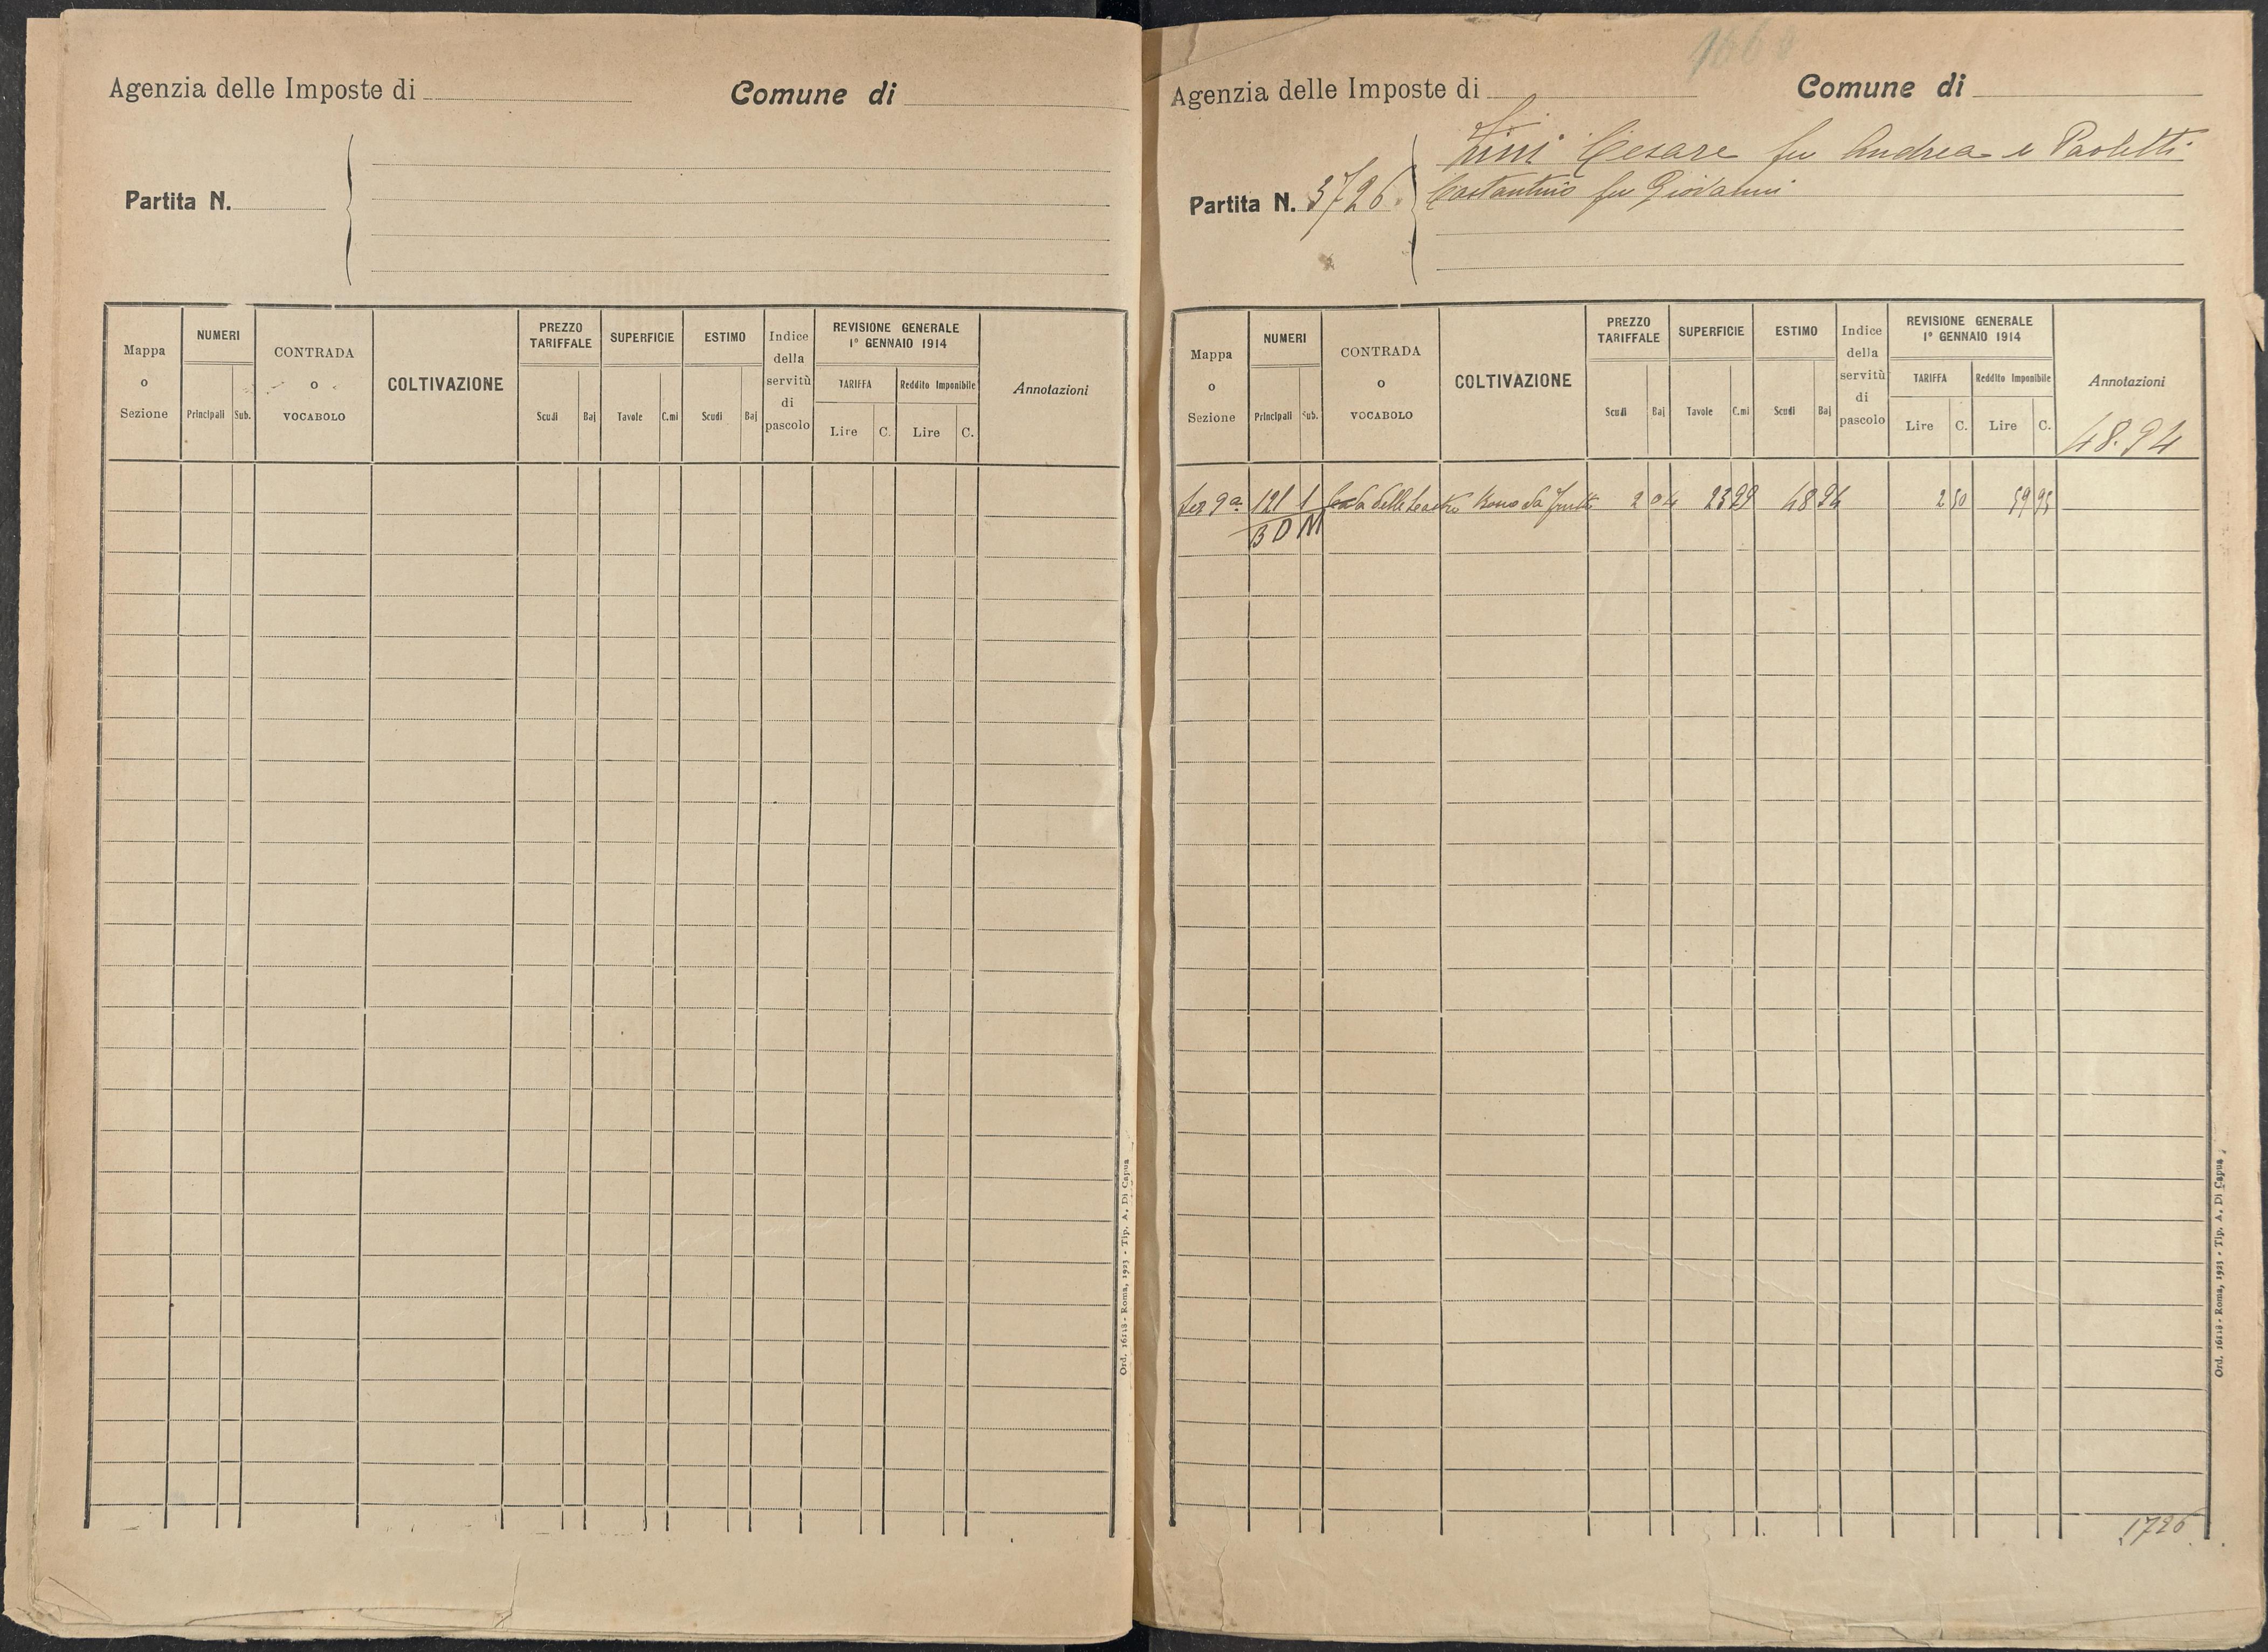 Agenzia delle Imposte di
Comune di
Partita N.
Mappa o Sezione
NUMERI
Principali Sub.
CONTRADA o VOCABOLO
COLTIVAZIONE
PREZZO TARIFFALE
Scudi Baj
SUPERFICIE
Tavole C.mi
ESTIMO
Scudi Baj
Indice della servitù di pascolo
REVISIONE GENERALE
1° GENNAIO 1914
TARIFFA Reddito Imponibile
Lire C. Lire C.
Annotazioni
Ord. 16118 - Roma, 1923 - Tip. A. Di Capua
1660
Agenzia delle Imposte di
Comune di
Partita N. 3726
Zini Cesare fu Andrea e Paoletti
Costantino fu Giovanni
Mappa o Sezione
NUMERI
Principali Sub.
CONTRADA o VOCABOLO
COLTIVAZIONE
PREZZO TARIFFALE
Scudi Baj
SUPERFICIE
Tavole C.mi
ESTIMO
Scudi Baj
Indice della servitù di pascolo
REVISIONE GENERALE
1° GENNAIO 1914
TARIFFA Reddito Imponibile
Lire C. Lire C.
Annotazioni
48.94
Sez 9a 121 1 delle da frutto 2 04 23 99 48 94 2 50 59 95
B D M
1726
Ord. 16118 - Roma, 1923 - Tip. A. Di Capua